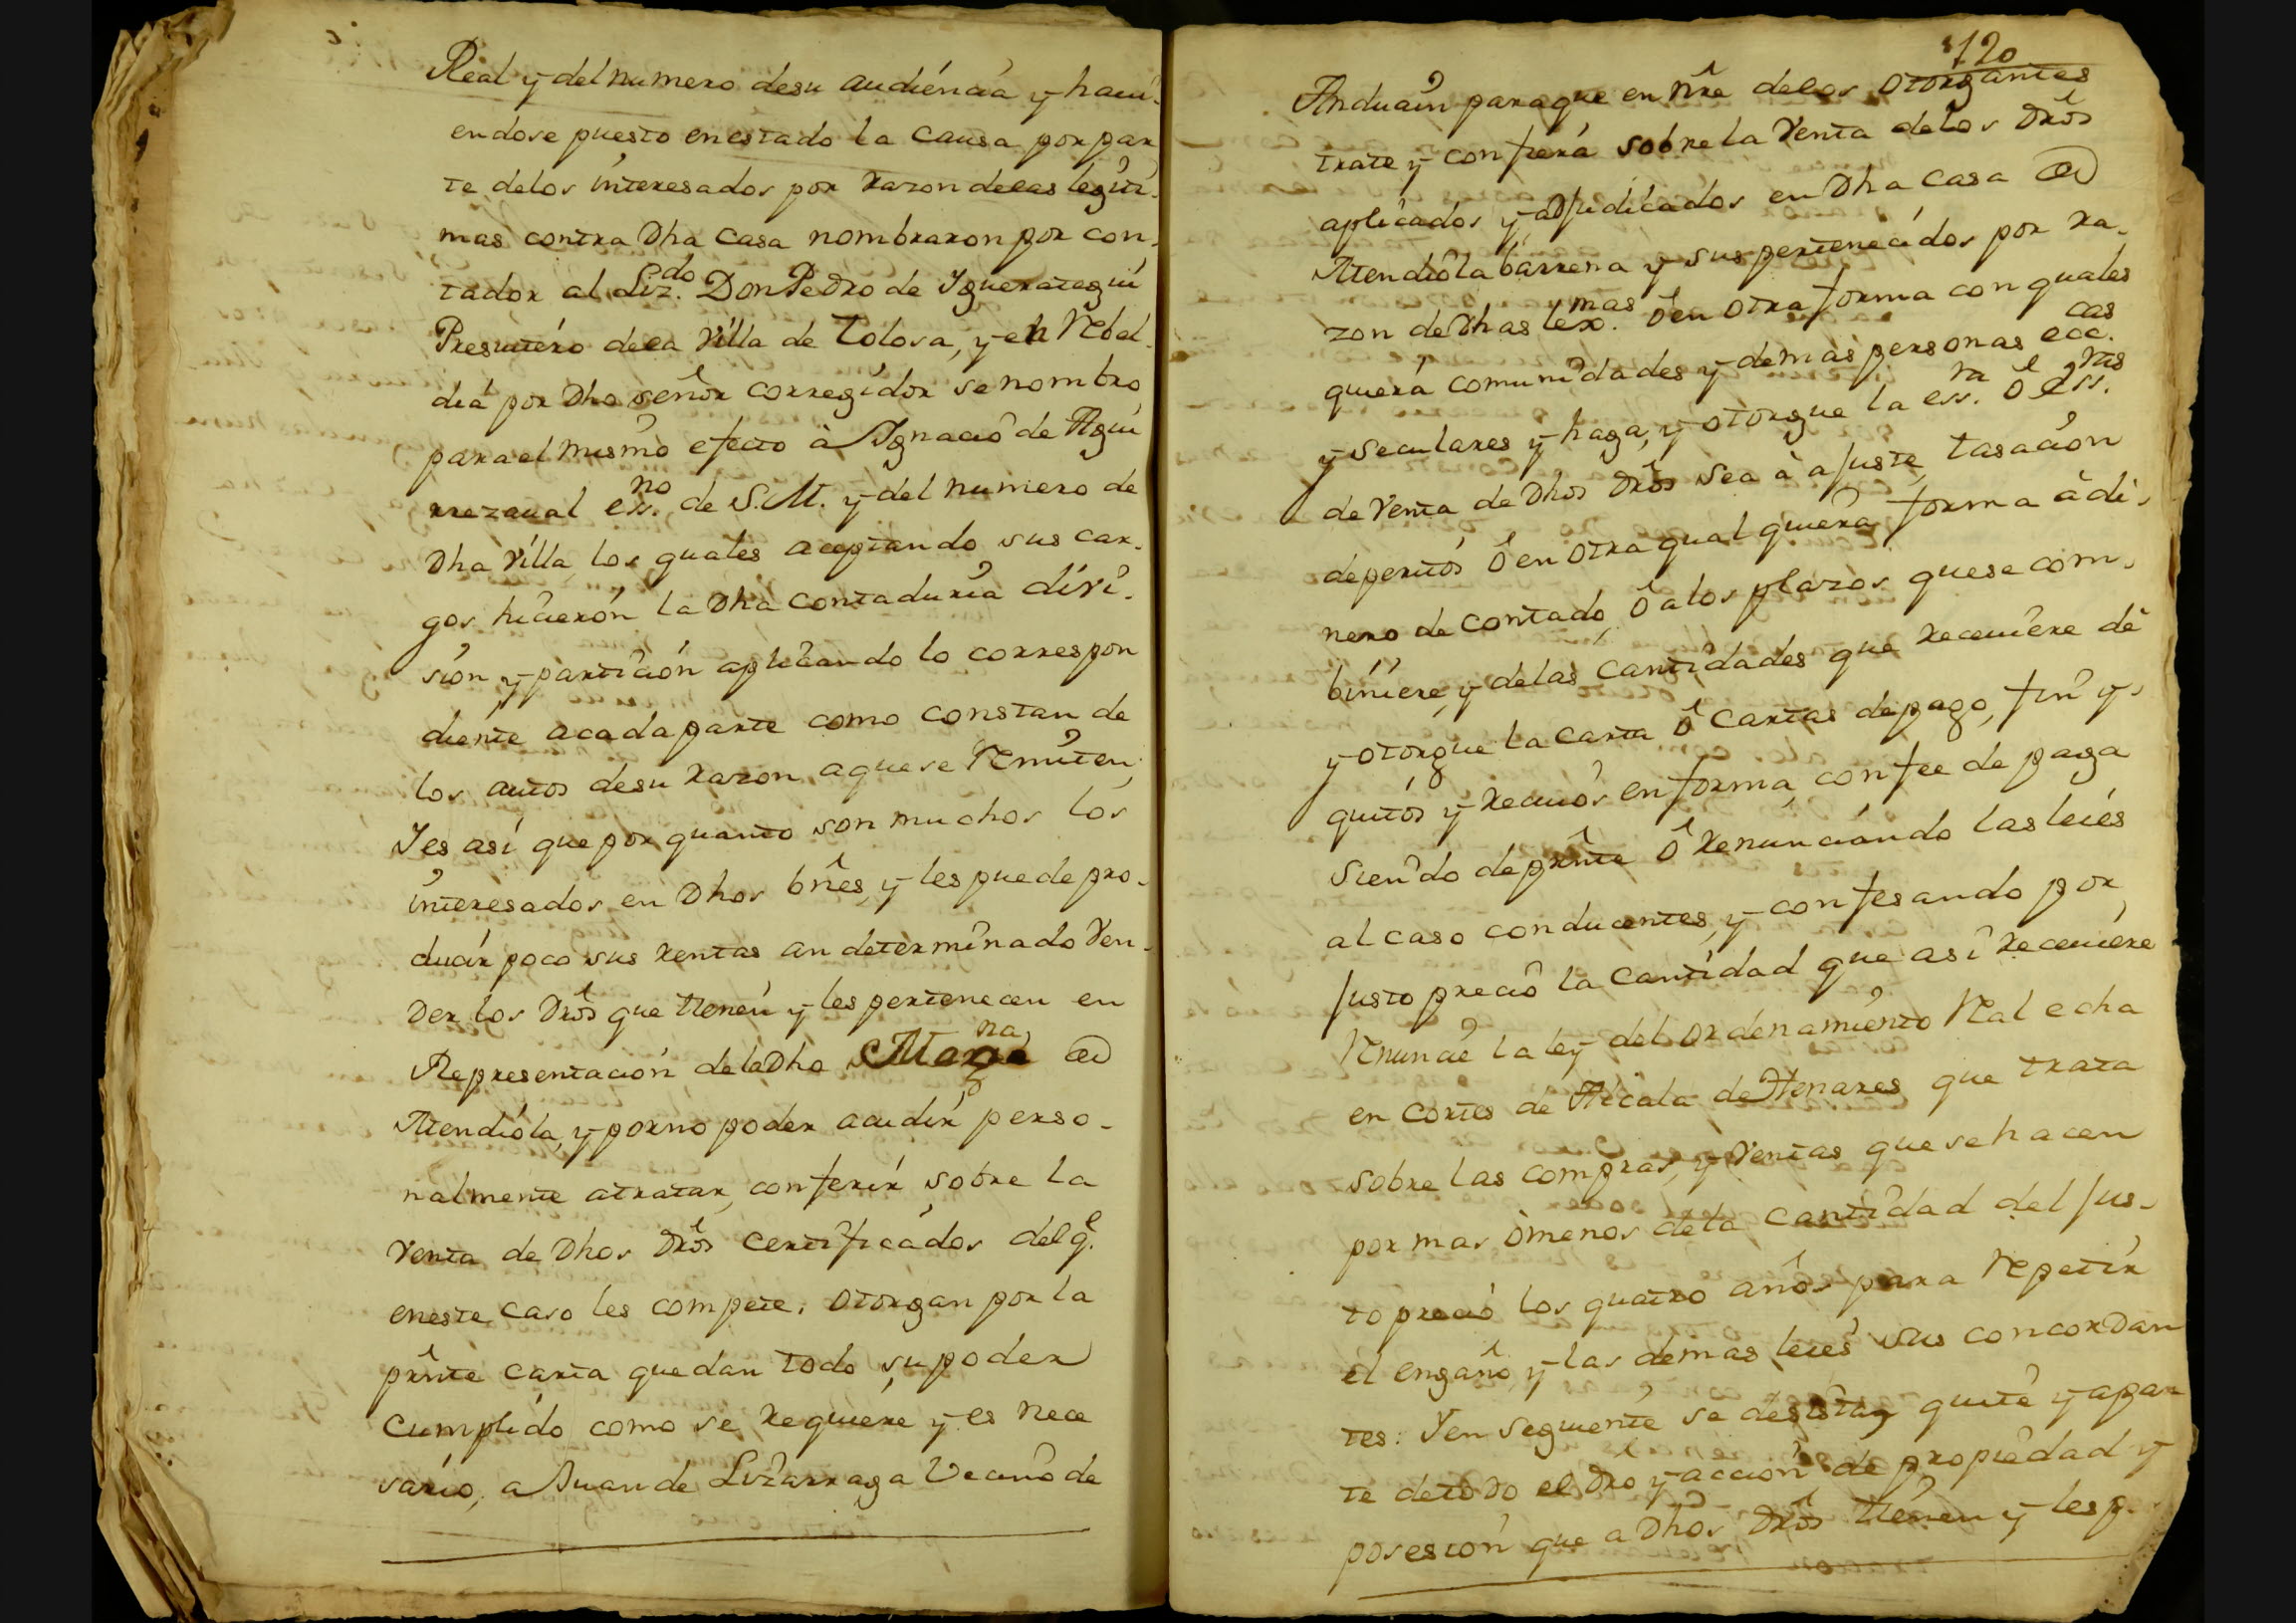 Real y del numero desu audiencia y haui-
endose puesto enestado la causa por par
te delos interesados por razon delas legiti-
mas contra Dha Casa nombraron por con-
tador al Liz.do Don Pedro de Ygueràtegui
Presuitero dela Villa de Tolosa, y en Rebel-
dia por Dho señor corregidor se nombro
para el mismo efecto à Ygnacio de Agui
rrezaual ess.no de S.M. y del numero de
Dha Villa, los quales aceptando sus car-
gos hicieron la Dha Contaduria divi-
sion y particion aplicando lo correspon
diente acada parte como constan de
los autos desu razon, a que se Remiten;
Yes así que por quanto son muchos los
interesados en Dhos bnês, y les puede pro-
ducir poco sus rentas an determinado Ven-
der los Drôs que tienen y les pertenecen en
Representacion dela Dha Mar.na @
Atendiola, y por no poder acudir perso-
nalmente atratar, conferir sobre la
Venta de Dhos Drôs certificados del q.e
eneste caso les compete, otorgan por la
prnte carta que dan todo su poder
Cumplido como se requiere y es nece
sario, a Juan de Lizarraga Vecino de
120
Anduain paraque en nrê delos otorgantes
trate y confiera sobre la Venta delos Drôs
aplicados y adjudicados en Dha Casa @
Atendiola barrena y sus pertenecidos por ra-
zon de Dhas lex.mas ô en otra forma con quales
quiera comunidades y demas personas ecc.cas
y seculares y haga, y otorgue la ess.ra ô ess.ras
de Venta de Dhos Drôs sea à ajuste, tasacion
deperitos ô en otra qual quiera forma â di-
nero de contado, ô alos plazos que se com-
biniere, y delas cantidades que receuiere dê
y otorgue la carta ô cartas de pago, fin y
quitos y reciuos en forma, con fee de paga
siendo de prnte ô renunciando las leies
al caso conducentes, y confesando por
justo precio la cantidad que asi receuiere
Renuncie la ley del ordenamiento Real echa
en cortes de Alcala de Henares que trata
sobre las compras, y Ventas que se hacen
por mas ò menos de la cantidad del jus-
to precio los quatro años para Repetir
el engaño y las demas leies sus concordan
tes: Y en seguiente se desista, quite y apar
te de todo el Dro y accion de propiedad y
posesion que a Dhos Drôs tienen y les p.